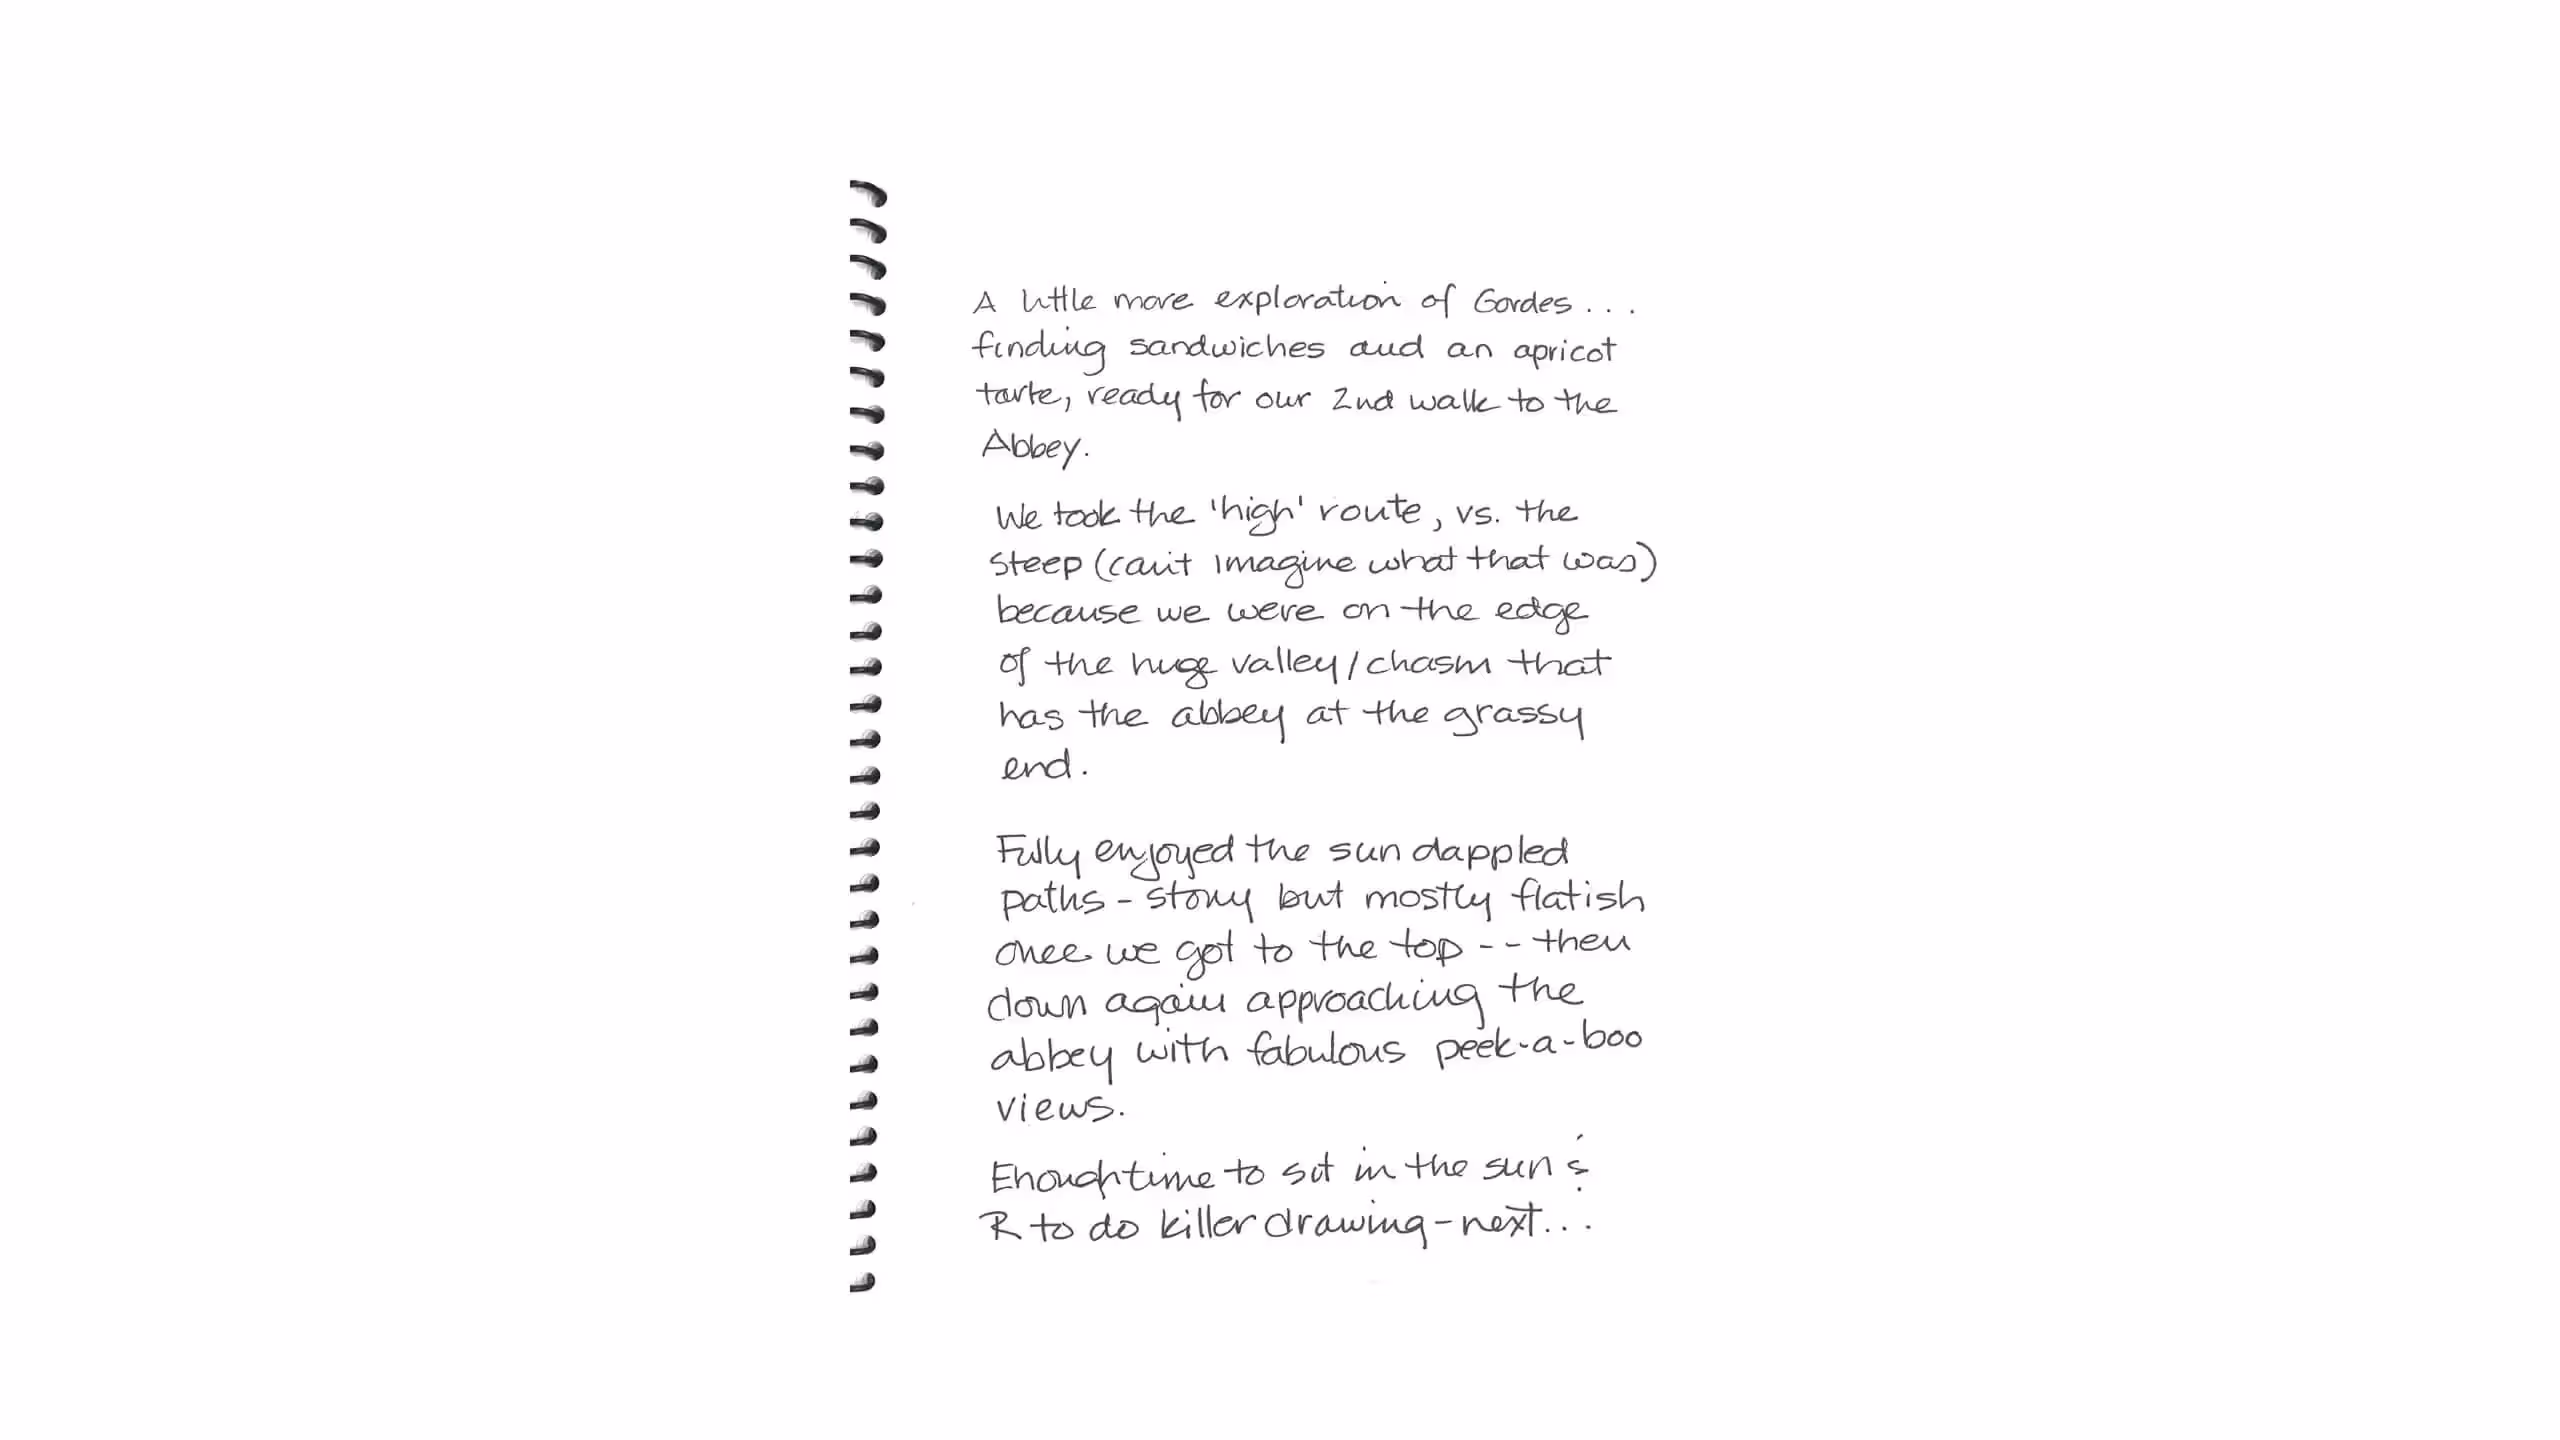 A little more exploration of Gordes...
finding sandwiches and an apricot
tarte, ready for our 2nd walk to the
Abbey.
We took the 'high' route, vs. the
steep (can't imagine what that was)
because we were on the edge
of the huge valley/chasm that
has the abbey at the grassy
end.
Fully enjoyed the sun dappled
paths - stony but mostly flatish
once we got to the top -- then
down again approaching the
abbey with fabulous peek-a-boo
views.
Enough time to sit in the sun &
R to do killer drawing - next...